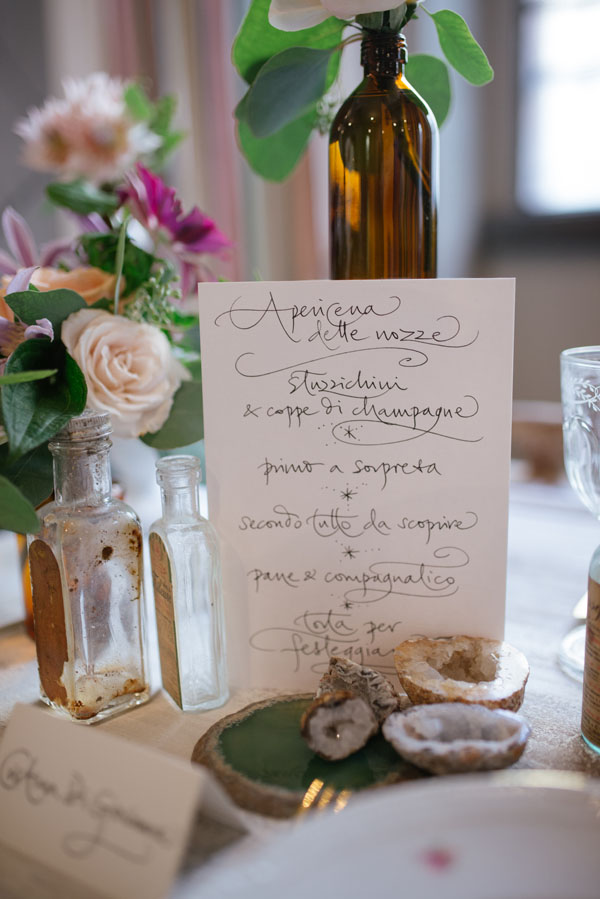 Apericena
delle nozze
stuzzichini
& coppe di champagne
primo a sorpresa
secondo tutto da scoprire
pane & compagnatico
torta per
festeggia
Di